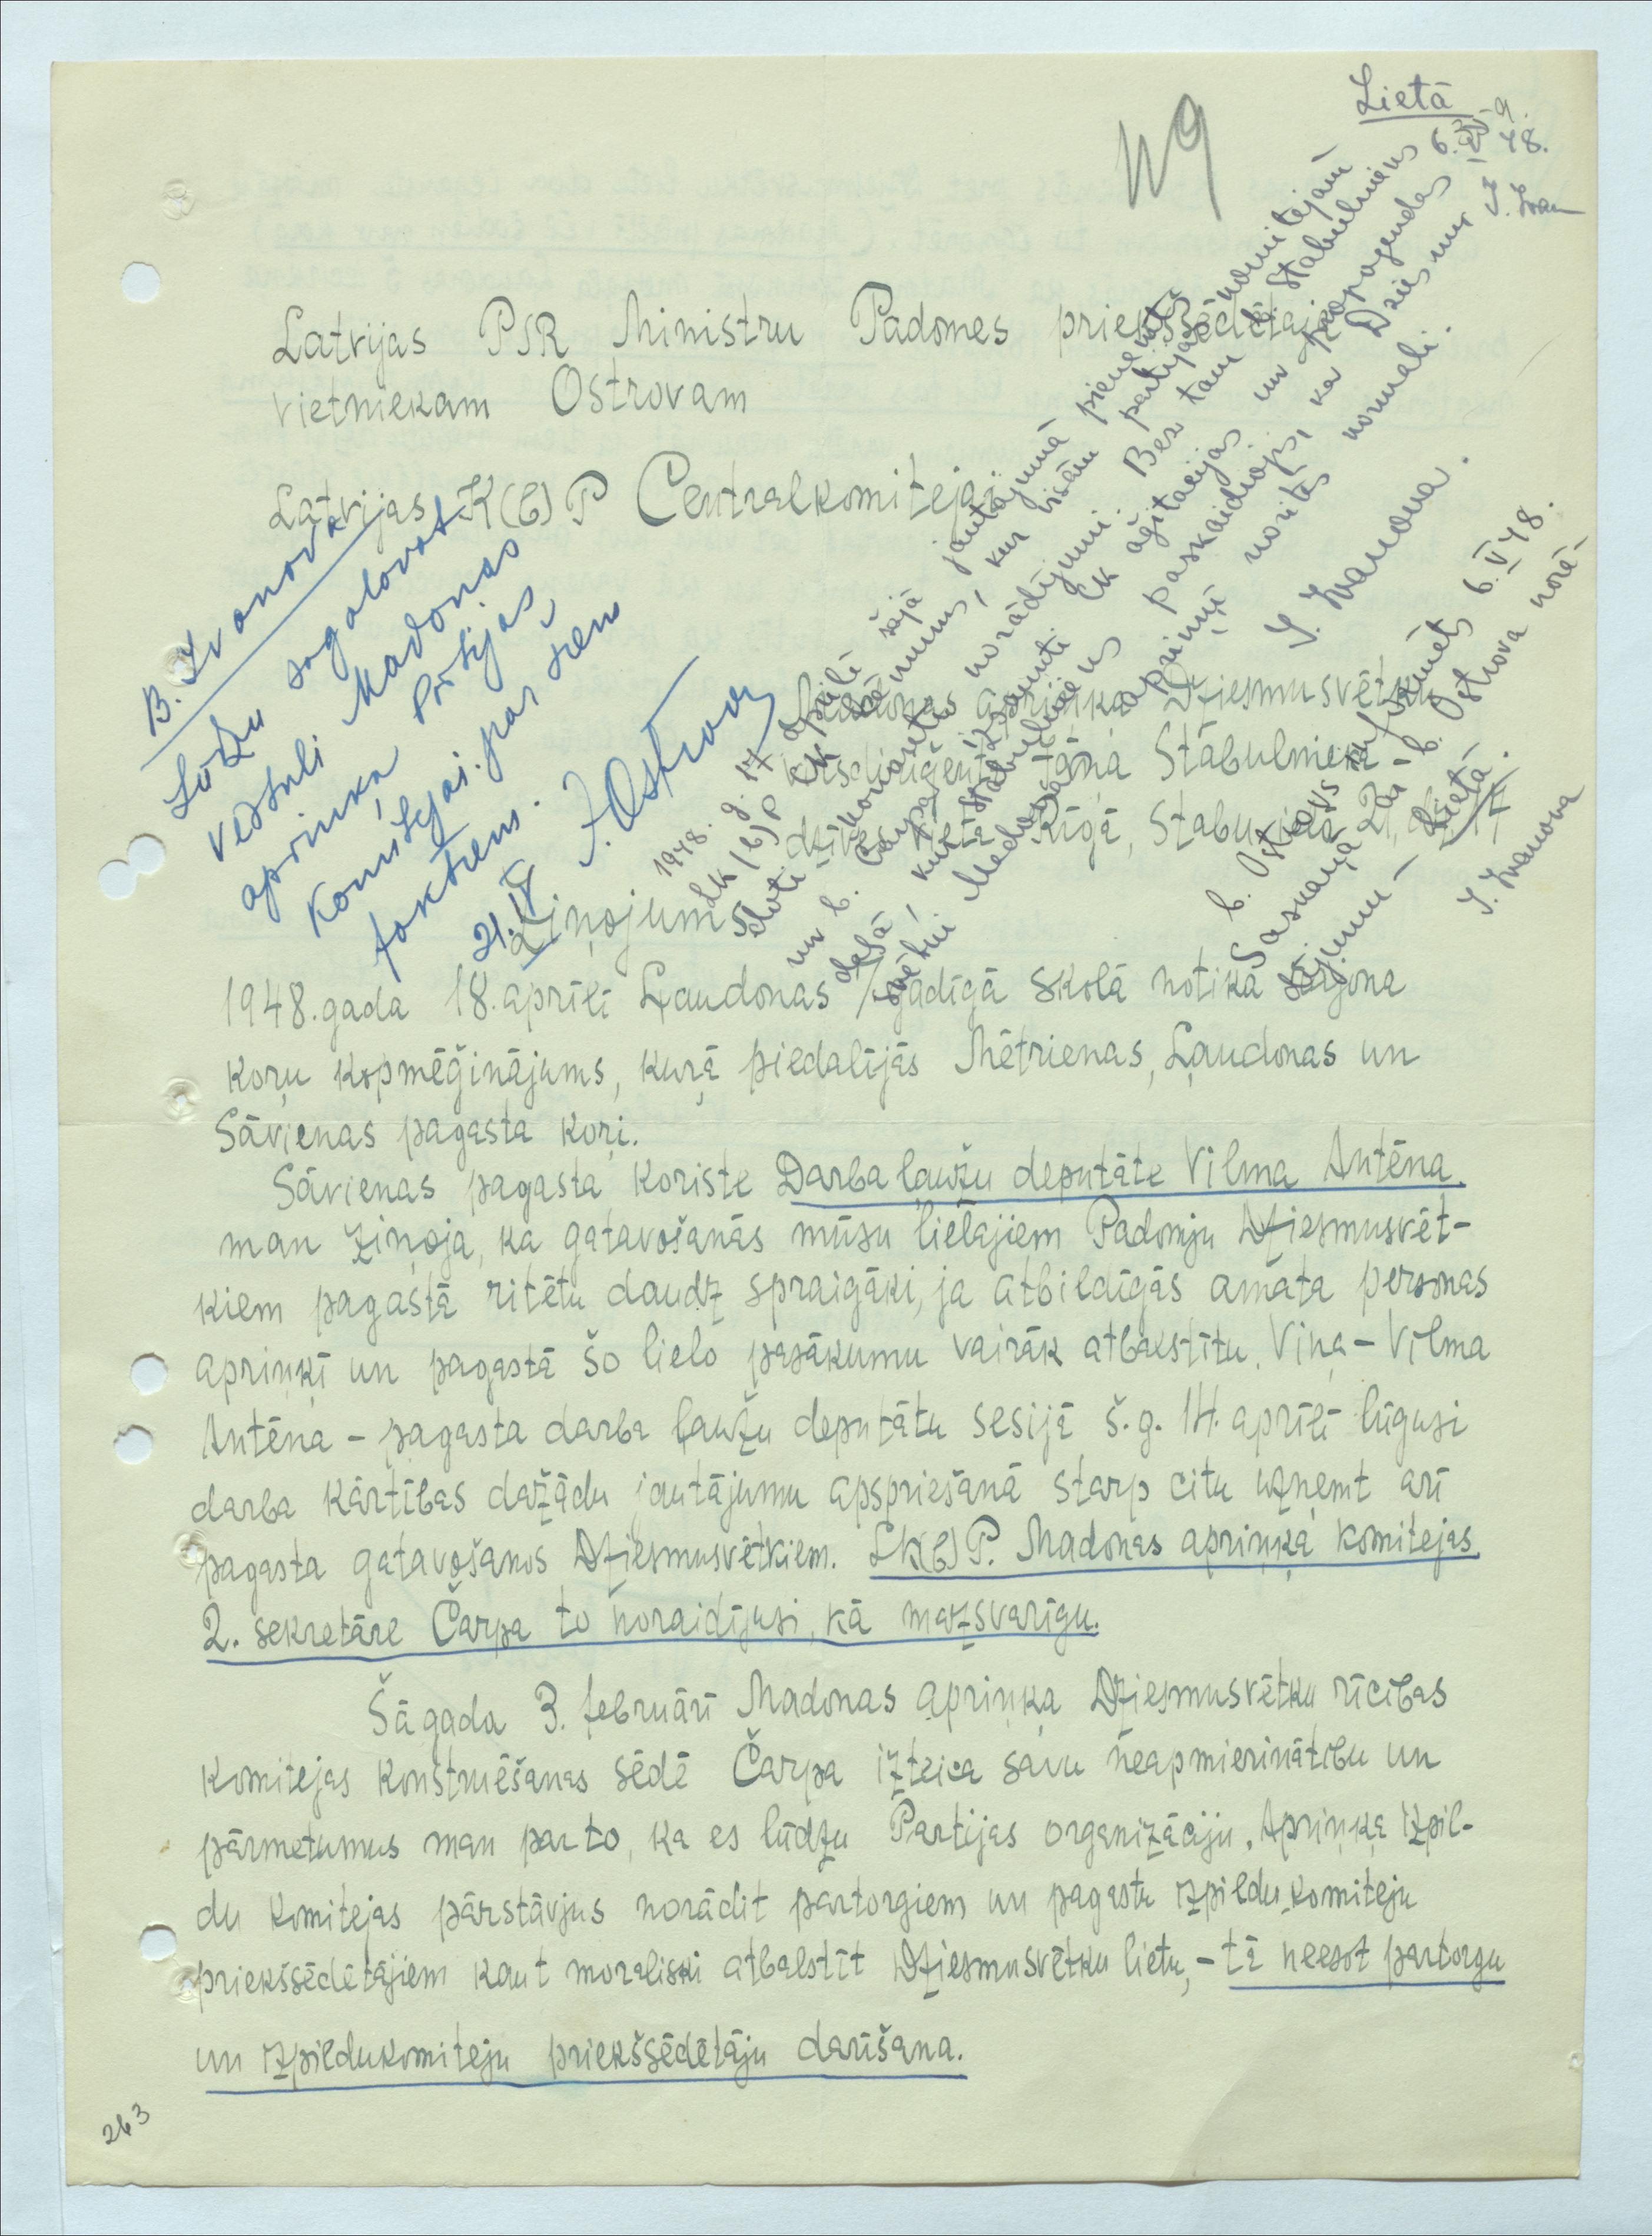 Lietā
6.V 48.
119
Latvijas PSR Ministru Padomes priekšsēdētāja
vietniekam Ostrovam
Latvijas K(b)P Centralkomitejai
B. Ivanova
Lūdzu sagatavot
vēstuli Madonas
apriņķa Partijas
Komitejai par šiem
faktiem.
21.IV J. Ostrovs
1948. g. 17 aprīlī šajā jautājumā pieņemts
LK(b)P CK lēmums, kur visām partijas komitejām
doti konkreti norādījumi. Bez tam b. Stabulnieks
un b. Čarpa izsaukti CK aģitacijas un propagandas
daļā, kur Stabulnieks paskaidrojis, ka Dziesmu
svētki Madonas apriņķī noritēs normali.
I. Ivanova.
b. Ostrovs informēts 6.V 48.
Saskaņā ar b. Ostrova norā-
dījumu – Lietā.
I. Ivanova
Madonas apriņķa Dziesmusvētku
virsdiriģenta Jāņa Stabulnieka
dzīves vieta Rīgā, Stabu ielā
Ziņojums
1948.gada 18.aprīlī Ļaudonas 7gadīgā skolā notika rajona
koņu kopmēģinājums, kuŗā piedalījās Mētrienas, Ļaudonas un
Sāvienas pagasta koŗi.
Sāvienas pagasta koriste Darba ļaužu deputāte Vilma Antēna
man ziņoja, ka gatavošanās mūsu lielajiem Padomju Dziesmusvēt-
kiem pagastā ritētu daudz spraigāki, ja atbildīgās amata personas
apriņķī un pagastā šo lielo pasākumu vairāk atbalstītu. Viņa – Vilma
Antēna – pagasta darba ļaužu deputātu sesijā š.g. 14. aprīlī lūgusi
darba kārtības dažādu jautājumu apspriešanā starp citu uzņemt arī
pagasta gatavošanos Dziesmusvētkiem. LK(b)P. Madonas apriņķa komitejas
2. sekretāre Čarpa to noraidījusi, kā mazsvarīgu.
Šāgada 3. februārī Madonas apriņķa Dziesmusvētku rīcības
komitejas konstruēšanas sēdē Čarpa izteica savu neapmierinātību un
pārmetumus man par to, ka es lūdzu Partijas organizāciju, Apriņķa Izpil-
du komitejas pārstāvjus norādīt partorgiem un pagastu izpildu komiteju
priekšsēdētājiem kaut moraliski atbalstīt Dziesmusvētku lietu, – tā neesot partorgu
un izpildukomiteju priekšsēdētāju darīšana.
263